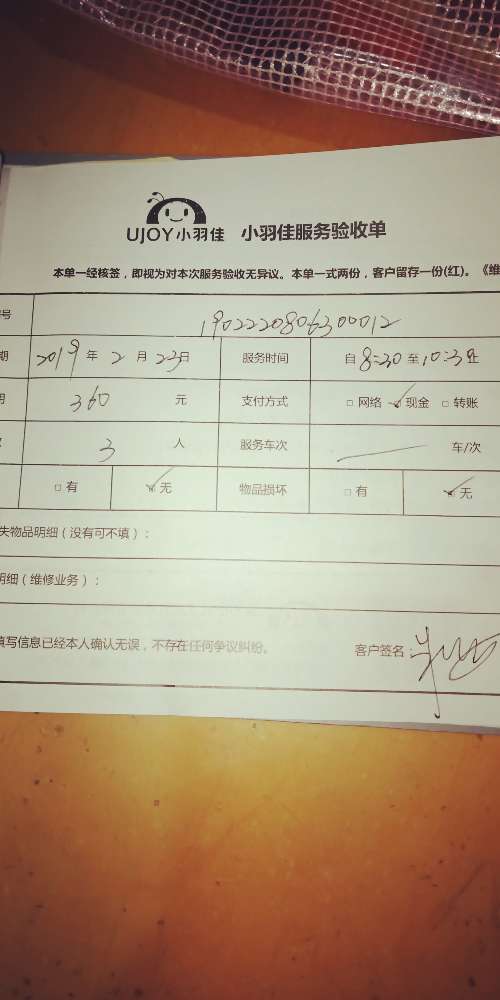 UJOY小羽佳 小羽佳服务验收单
本单一经核签，即视为对本次服务验收无异议。本单一式两份，客户留存一份(红)。《维
号 1902220806300012
期 2019 年 2 月 23日 服务时间 自 8:30 至 10:30 止
用 360 元 支付方式 □ 网络 ☑ 现金 □ 转账
3 人 服务车次 车/次
□ 有 ☑ 无 物品损坏 □ 有 ☑ 无
失物品明细（没有可不填）：
明细（维修业务）：
填写信息已经本人确认无误，不存在任何争议纠纷。 客户签名：